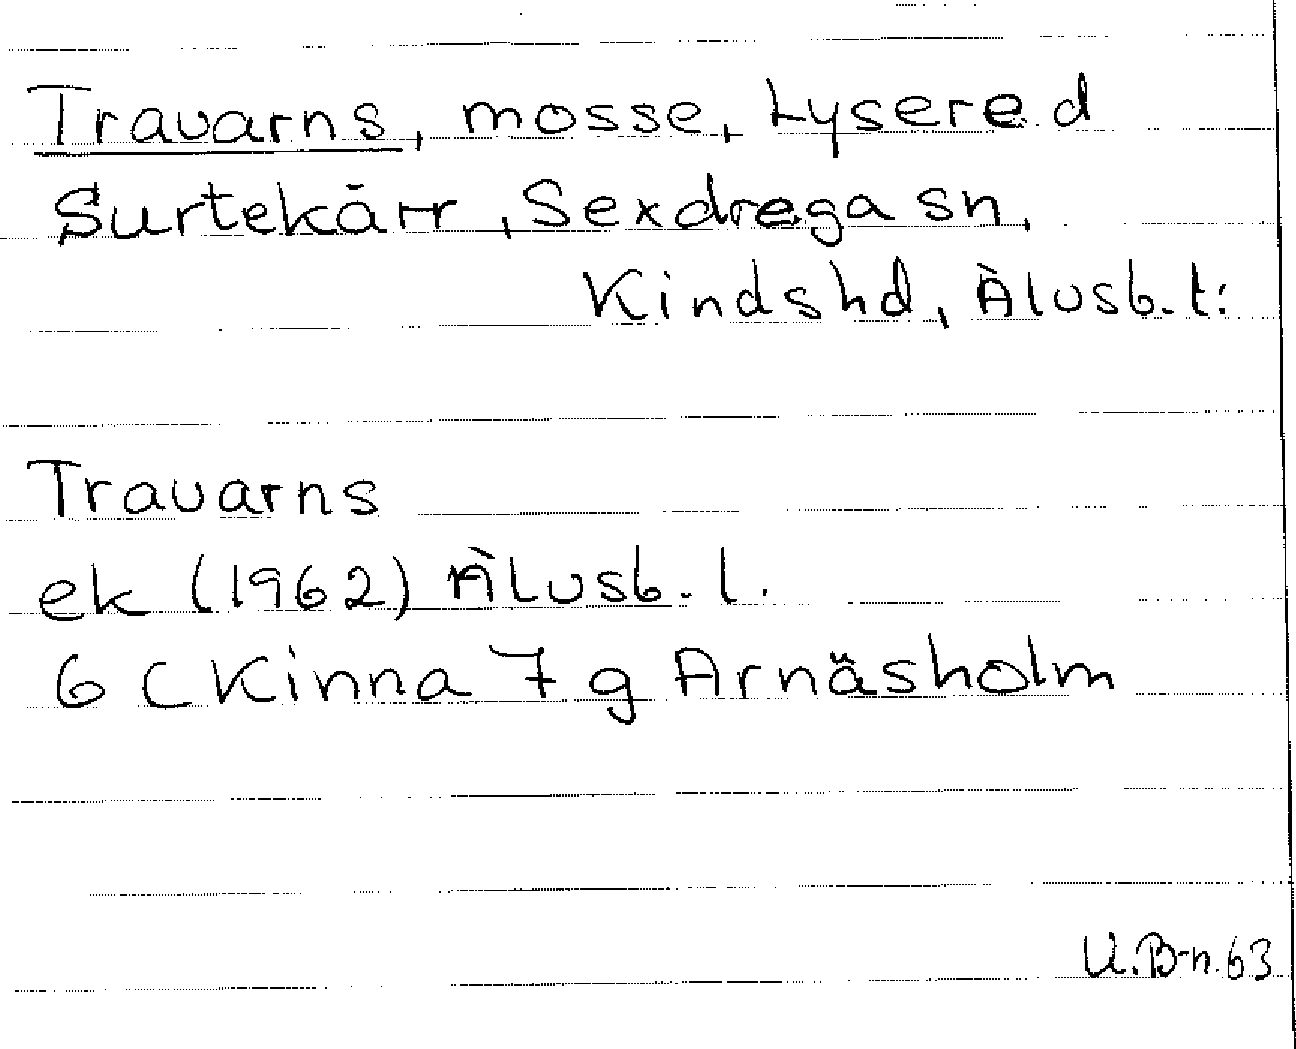 Travarns, mosse, Lysered
Surtekärr, Sexdrega sn,
Kindshd, Älvsb. l:
Travarns
ek (1962) Älvsb. l.
6 C Kinna 7 g Arnäsholm
U.B-n.63